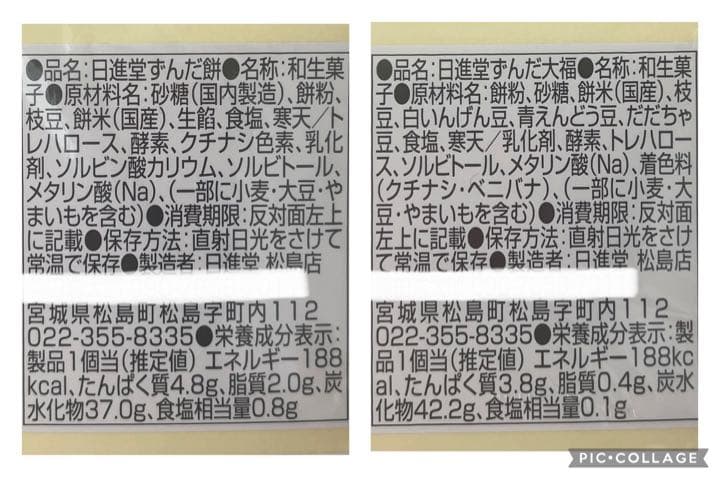 ●品名:日進堂ずんだ餅●名称:和生菓
子●原材料名:砂糖(国内製造)、餅粉、
枝豆、餅米(国産)、生餡、食塩、寒天／ト
レハロース、酵素、クチナシ色素、乳化
剤、ソルビン酸カリウム、ソルビトール、
メタリン酸(Na)、(一部に小麦・大豆・や
まいもを含む)●消費期限:反対面左上
に記載●保存方法:直射日光をさけて
常温で保存●製造者:日進堂 松島店
宮城県松島町松島字町内112
022-355-8335●栄養成分表示:
製品1個当(推定値) エネルギー188
kcal、たんぱく質4.8g、脂質2.0g、炭
水化物37.0g、食塩相当量0.8g
●品名:日進堂ずんだ大福●名称:和生菓
子●原材料名:餅粉、砂糖、餅米(国産)、枝
豆、白いんげん豆、青えんどう豆、だだちゃ
豆、食塩、寒天／乳化剤、酵素、トレハロー
ス、ソルビトール、メタリン酸(Na)、着色料
(クチナシ・ベニバナ)、(一部に小麦・大
豆・やまいもを含む)●消費期限:反対面
左上に記載●保存方法:直射日光をさけ
て常温で保存●製造者:日進堂 松島店
宮城県松島町松島字町内112
022-355-8335●栄養成分表示:製
品1個当(推定値) エネルギー188kc
al、たんぱく質3.8g、脂質0.4g、炭水
化物42.2g、食塩相当量0.1g
PIC•COLLAGE